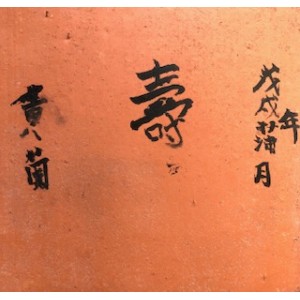 戊戌年蒲月
壽
黄八菊